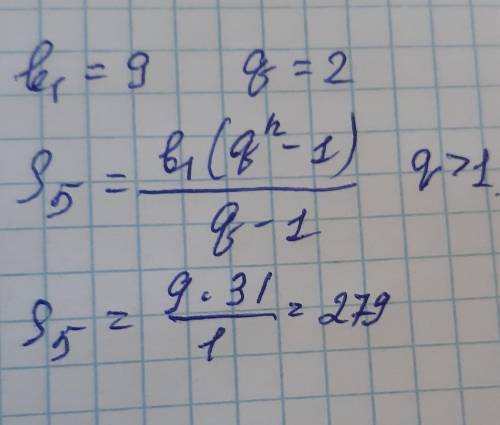 b₁ = 9 q = 2
S₅ = b₁(qⁿ - 1) / q - 1 q > 1
S₅ = 9 · 31 / 1 = 279